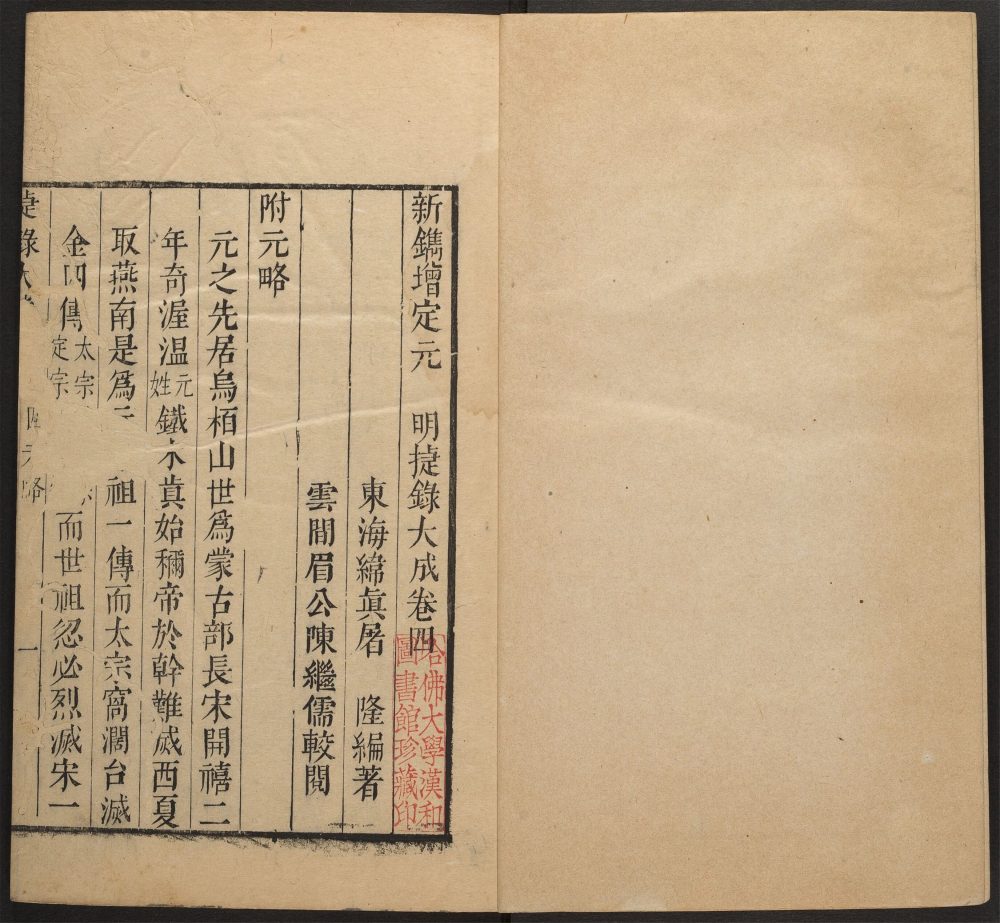 新鐫增定元　明捷錄大成卷四
東海緯眞屠　隆編著
雲間眉公陳繼儒較閱
附元略
元之先居烏栢山世爲蒙古部長宋開禧二
年奇渥温元姓鐵木眞始稱帝於幹難滅西夏
取燕南是爲 祖一傳而太宗窩濶台滅
金四傳太宗定宗 而世祖忽必烈滅宋一
捷錄大
元略
一
哈佛大學漢和
圖書館珍藏印